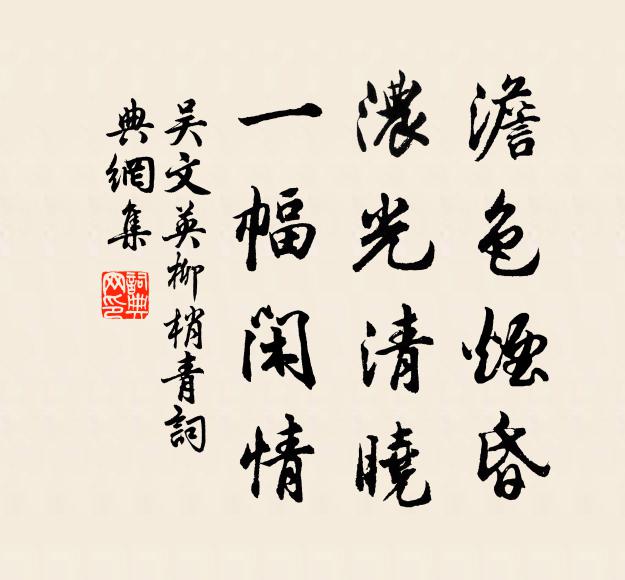 澹色煙昏
濃光清曉
一幅閑情
吳文英柳梢青詞
典網集
詞典
网印